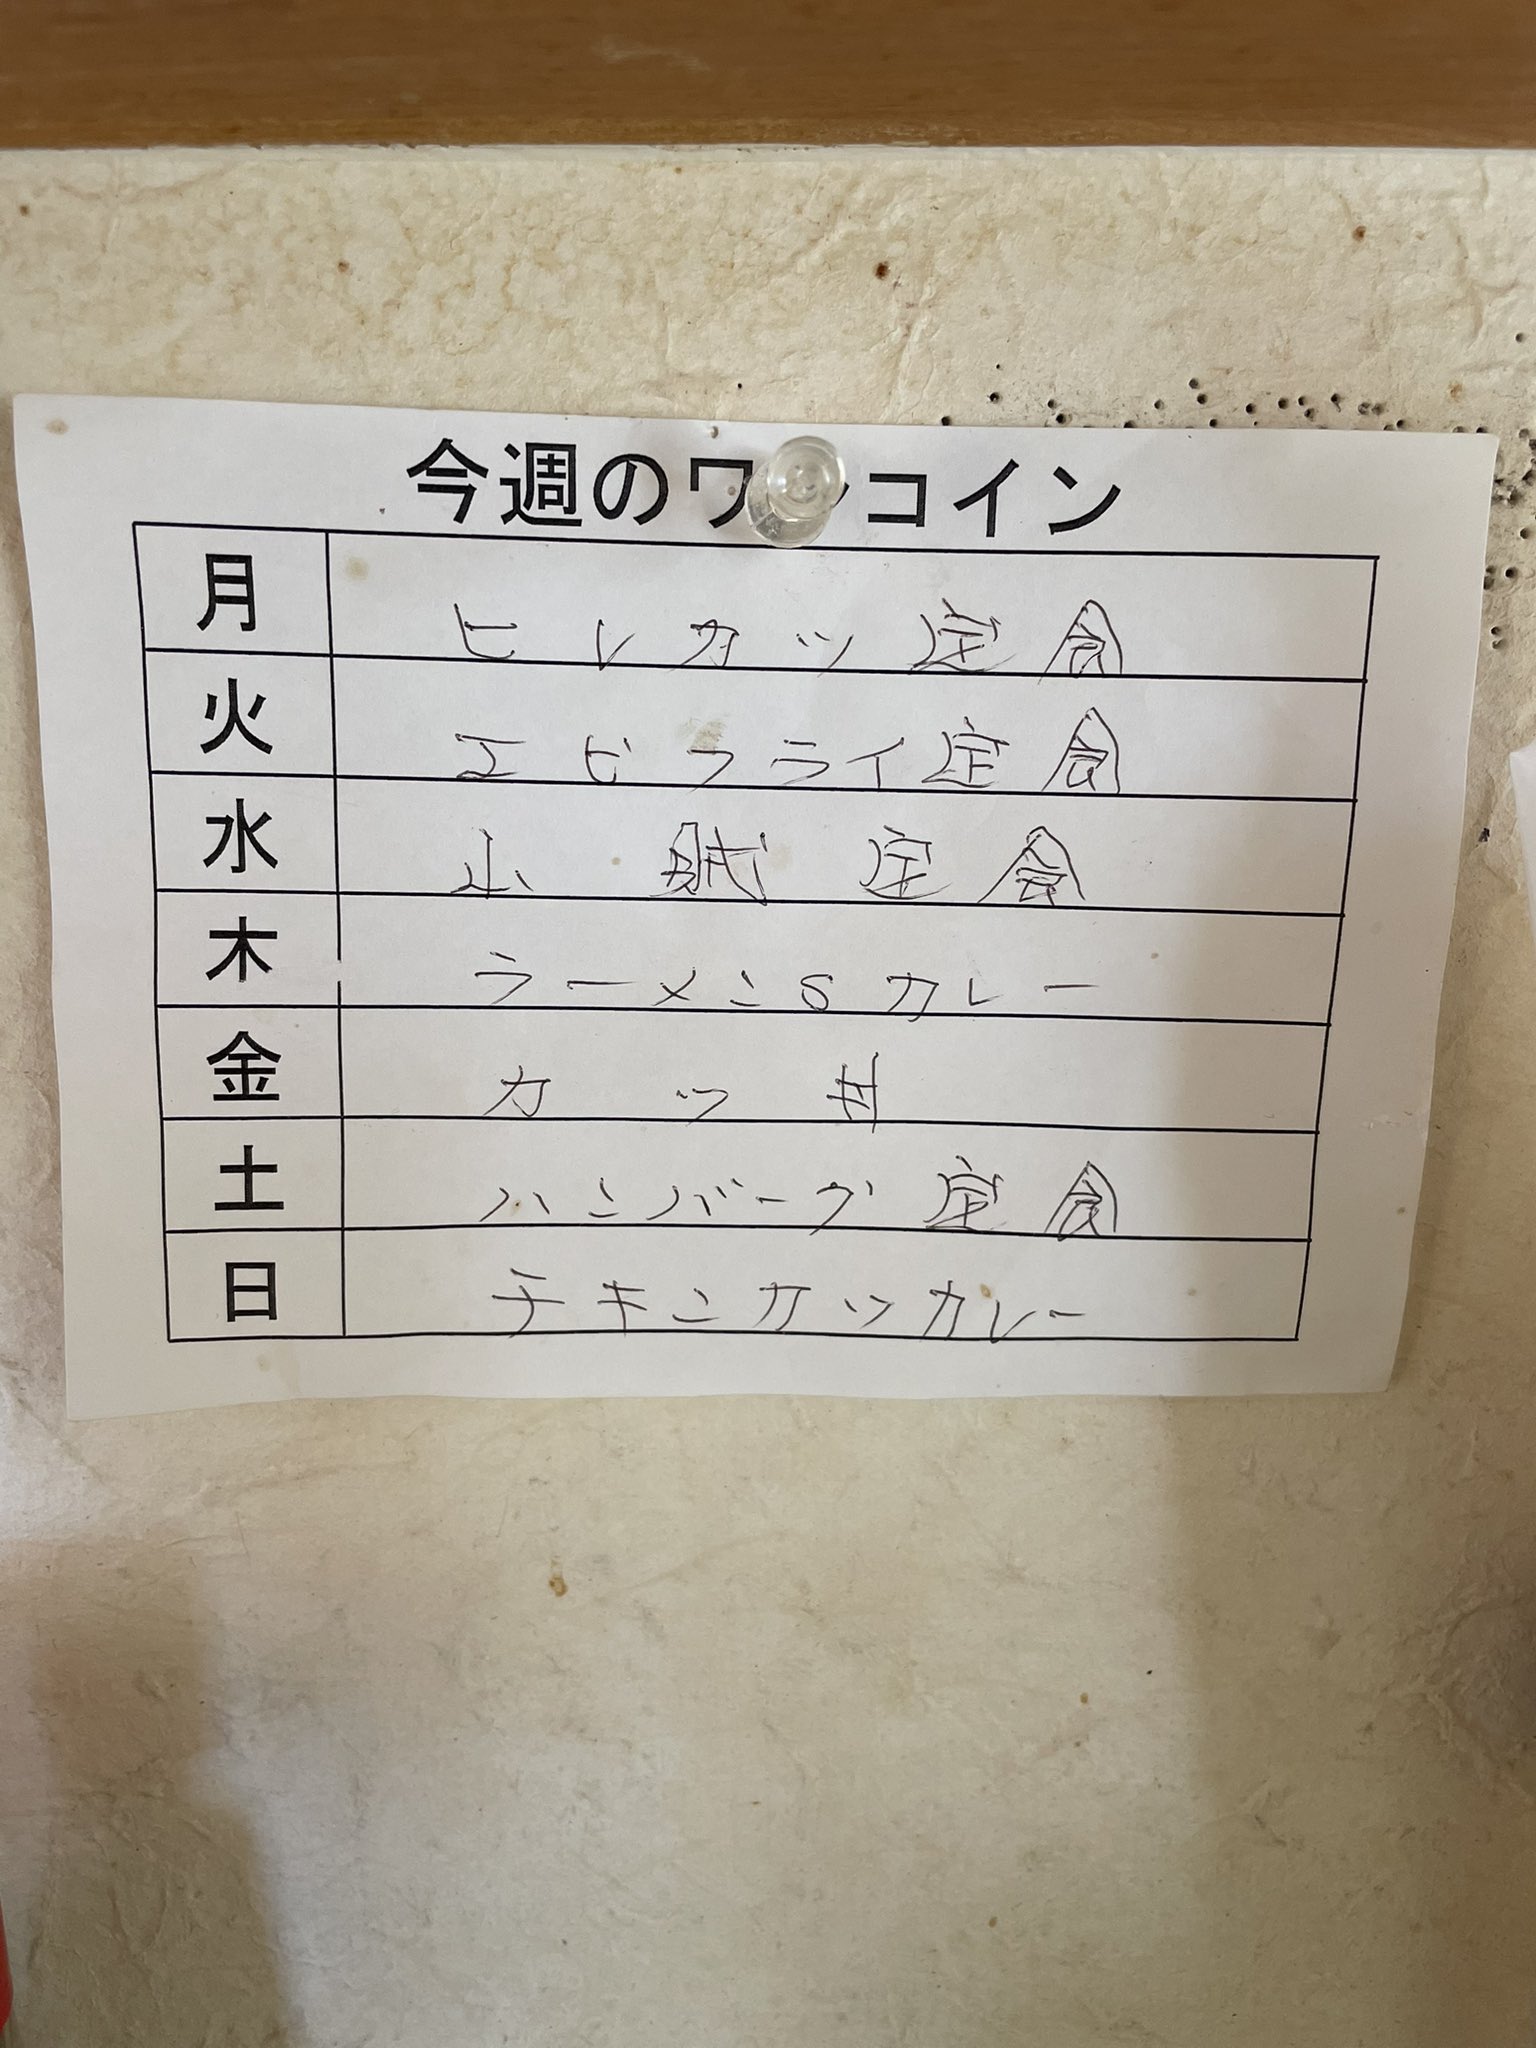 今週のワンコイン
月 ヒレカツ定食
火 エビフライ定食
水 山賊定食
木 ラーメンSカレー
金 カツ丼
土 ハンバーグ定食
日 チキンカツカレー